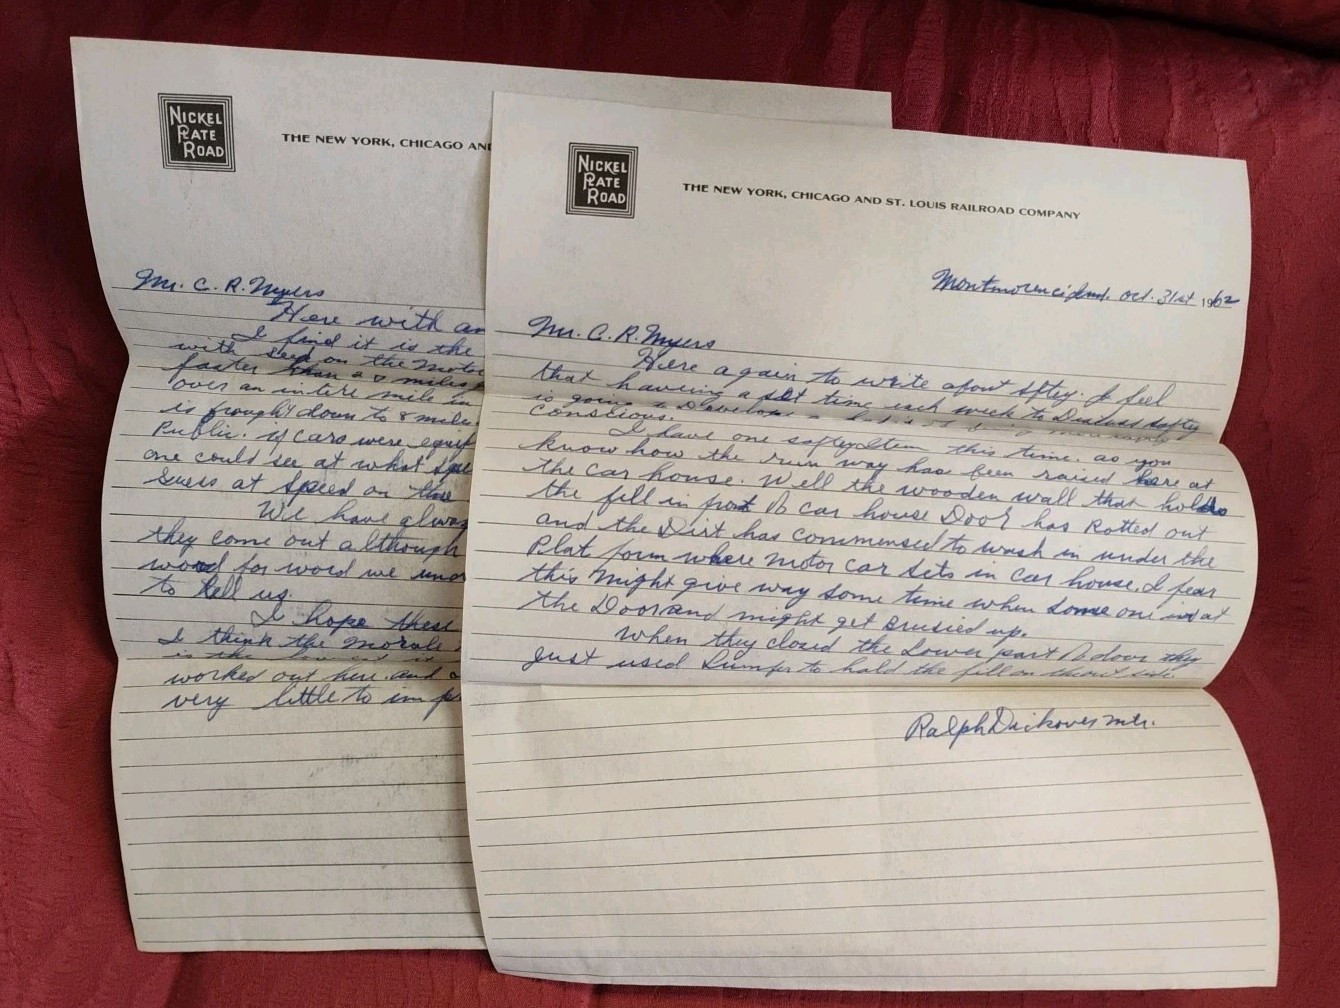 NICKEL
PLATE
ROAD
THE NEW YORK, CHICAGO AND
Mr. C. R. Myers
Here with an
I find it is the
with seed on the moto
faster than 20 miles
over an intire mile in
is brought down to 8 mile
Public. if cars were equip
one could see at what spe
at speed on
We have alway
they come out although
word for word we
to tell us.
I hope these
I think the morale
worked out here. and
very little to imp
NICKEL
PLATE
ROAD
THE NEW YORK, CHICAGO AND ST. LOUIS RAILROAD COMPANY
Montmorenci Ind. Oct. 31st 1962
Mr. C. R. Myers
Here again to write about Sfty. I feel
that haveing a set time each week to Discuss safty
is going to Develope a
Conscious.
I have one safty Item this time. as you
know how the run way has been raised here at
the car house. Well the wooden wall that holds
the fill in front of car house Door has Rotted out
and the Dirt has commensed to wash in under the
Plat form where motor car sets in car house. I fear
this might give way some time when some one is at
the Door and might get Brusied up.
When they closed the Lower part of door they
just used Lumper to hold the fill on
Ralph Dickover mtr.